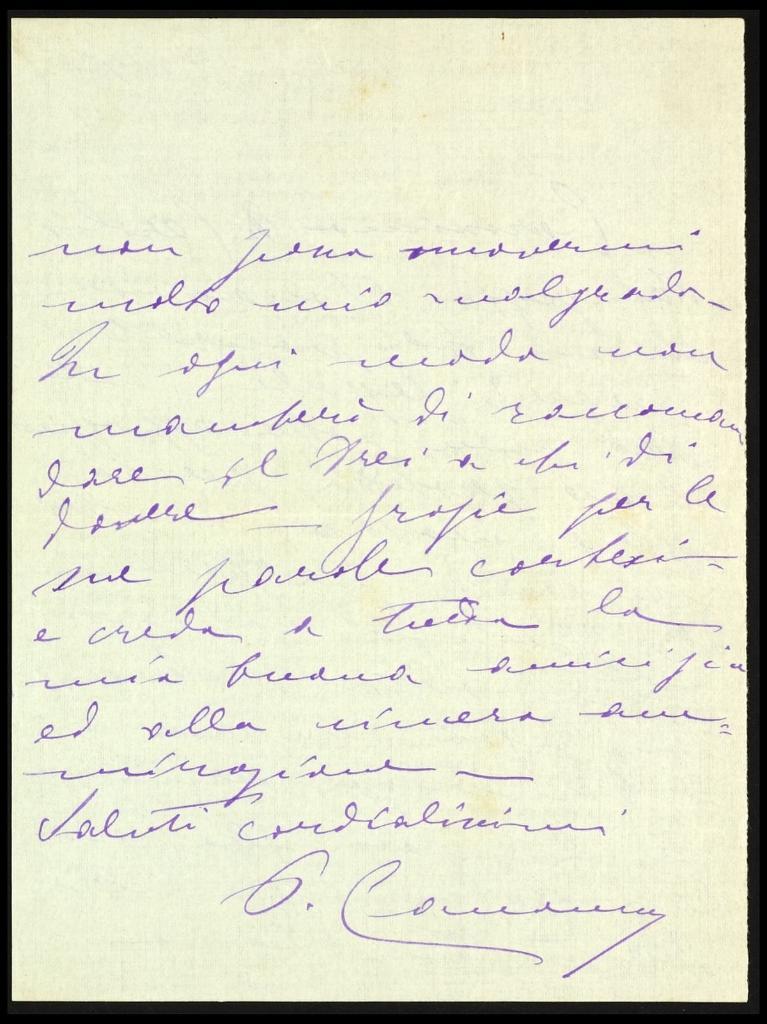 non posso muovermi
molto mio malgrado –
In ogni modo non
mancherò di raccoman
dare il Drei a chi di
dovere – Grazie per le
sue parole cortesi –
e creda a tutta la
mia buona amicizia
ed alla sincera am=
mirazione –
Saluti cordialissimi